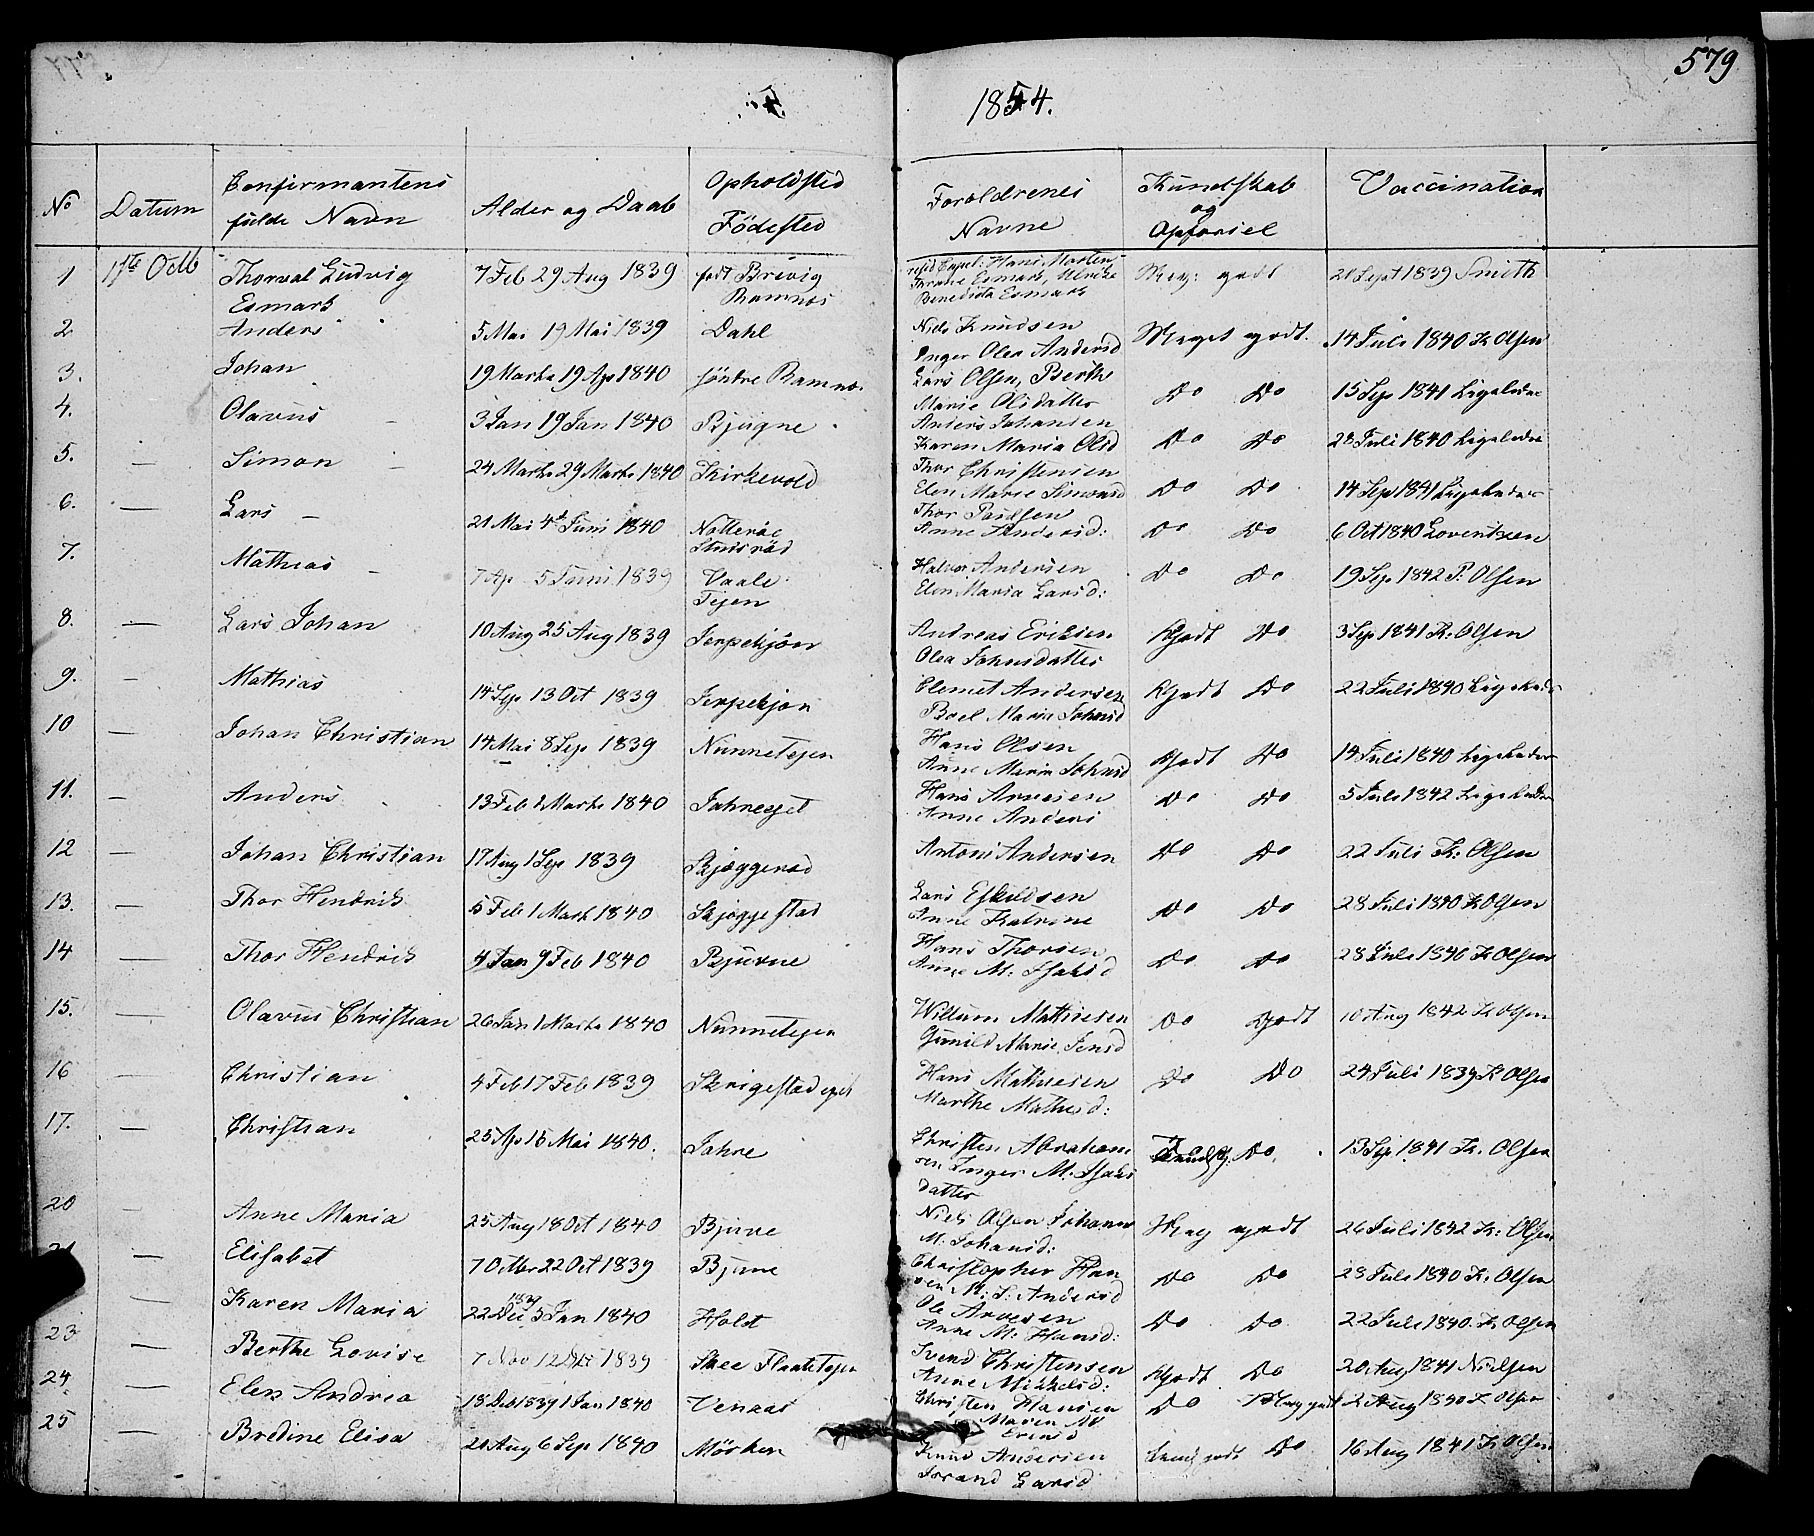 579
1854.
No
Datum
Confirmantens
fulde Navn
Alder og Daab
Opholdsted
Fødested
Forældrenes
Navne
Kundskab
og
Opførsel
Vaccination
1 1ste Octb Thorval Ludvig
Esmark
7 Feb 29 Aug 1839 født Brevig
Ramnæs
Hans Morten
Thrane Esmark, Ulrike
Benedicta Esmark
Meg: godt 21 Sept 1839 Smith
2. Anders 5 Mai 19 Mai 1839 Dahl
Niels Knudsen
Inger Olea Andersd
Meget godt. 14 Juli 1840 K Olsen
3. Johan 19 Marts 19 Ap 1840 søndre Ramnæs
Lars Olsen, Berthe
Marie Olsdatter
Do Do 15 Sep 1841 Ligeledes
4. Olavus 3 Jan 19 Jan 1840 Bjugne
Anders Johansen
Karen Maria Olsd
Do Do 28 Juli 1840 Ligeledes
5. Simon 24 Marts 29 Marts 1840 Kirkevold
Thor Christensen
Elen Marie Simonsd
Do Do 14 Sep 1841 Ligeledes
6. Lars 21 Mai 4de Juni 1840 Nøtterøe
Thor Paulsen
Anne Andersd:
Do Do 6 Oct 1840 Lorentzen
7. Mathias 7 Ap 5 Juni 1839 Vaale
Tejen
Halvor Andersen
Elen Maria Larsd:
Do Do 19 Sep 1842 P: Olsen
8. Lars Johan 10 Aug 25 Aug 1839 Jerpekjøn
Andreas Eriksen
Olea Johnsdatter
Godt Do 3 Sep 1841 K: Olsen
9. Mathias 14 Sep 13 Oct 1839 Jerpekjøn
Clemet Andersen
Boel Maria Johnsd
Godt Do 22 Juli 1840 Ligeledes
10 Johan Christian 14 Mai 8 Sep 1839 Nunnetejen
Hans Olsen
Anne Maria Johnsd
Godt Do 14 Juli 1840 Ligeledes
11. Anders 13 Feb 1 Marts 1840 Jahreejet
Hans Arvesen
Anne Anders
Do Do 5 Juli 1842 Ligeledes
12 Johan Christian 17 Aug 1 Sep 1839 Skjæggerød
Anton Andersen
Do Do 22 Juli K: Olsen
13. Thor Hendrik 5 Feb 1 Mark 1840 Skjeggestad
Lars Eskildsen
Anne Katrine
Do Do 28 Juli 1840 K Olsen
14 Thor Hendrik 4 Jan 9 Feb 1840 Bjurne
Hans Thorsen
Anne M: Isaksd
Do Do 28 Juli 1840 K Olsen
15. Olavus Christian 26 Jan 1 Marts 1840 Nunnetejen
Willum Mathiesen
Gunild Marie Jensd
Do Godt 10 Aug 1842 K Olsen
16 Christian 4 Feb 17 Feb 1839 Skrigestad ejet
Hans Mathiesen
Marthe Mathisd:
Do Do 24 Juli 1839 K Olsen
17. Christian 25 Ap 16 Mai 1840. Jahre
Christen Abraham
sen Inger M. Isaks
datter
Do. 13 Sep 1841 K. Olsen
20 Anne Maria 25 Aug 18 Oct 1840 Bjurne
Niels Olsen Johanne
M: Johansd:
Meg godt 26 Juli 1842 K: Olsen
21 Elisabet 7 Octbr 22 Oct 1839 Bjurne
Christopher Han
sen M: L: Andersd
Do Do 28 Juli 1840 K. Olsen
Karen Maria 22 Dec 1839 5 Jan 1840 Holst
Ole Arvesen
Anne M: Hansd:
Do Do 22 Juli 1840. K Olsen
23 Berthe Lovise 7 Nov 12 1839 Skee Flaatetejen
Svend Christensen
Anne Mikkelsd:
Godt Do 20 Aug 1841 Nielsen
24. Elen Andrea 18 Deb 1839 1 Jan 1840 Venaas
Christen Hansen
Maren M
Do Meg godt 2 Aug 1840 K Olsen
25 Bredine Elisa 21 Aug 6 Sep 1840 Mørken
Knud Andersen
Jorand Larsd
godt Do 16 Aug 1841 K Olsen